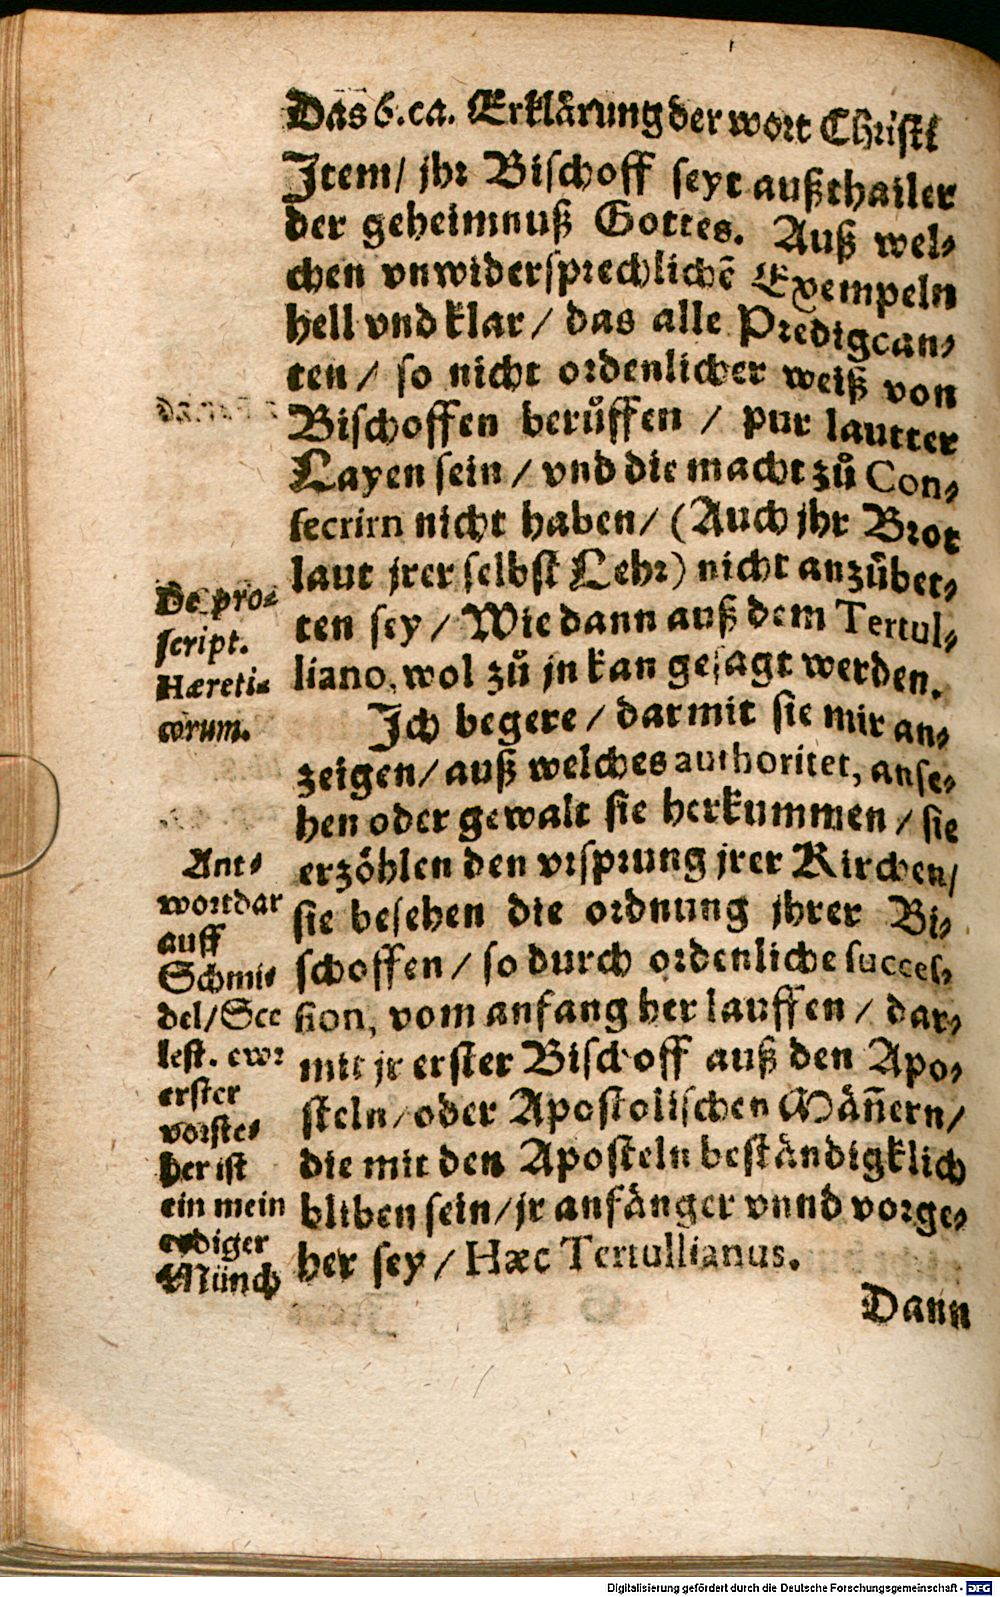 Das 6. ca. Erklärung der wort Christi
Item/ jhr Bischoff seyt außthailer
der geheimnuß Gottes. Auß wel-
chen vnwidersprechlichẽ Exempeln
hell vnd klar / das alle Predigcan-
ten / so nicht ordenlicher weiß von
Bischoffen berůffen / pur lautter
Layen sein / vnd die macht zů Con-
secrirn nicht haben/ (Auch jhr Brot
laut jrer selbst Lehr) nicht anzůbet-
ten sey / Wie dann auß dem Tertul-
liano, wol zů jn kan gesagt werden.
Ich begere / darmit sie mir an-
zeigen/ auß welches authoritet, anse-
hen oder gewalt sie herkummen / sie
erzöhlen den vrsprung jrer Kirchen/
sie besehen die ordnung jhrer Bi-
schoffen / so durch ordenliche succes-
sion, vom anfang her lauffen / dar-
mit jr erster Bischoff auß den Apo-
steln/ oder Apostolischen Mäñern/
die mit den Aposteln beständigklich
bliben sein/ jr anfänger vnnd vorge-
her sey / Hæc Tertullianus.
Dann
De pro-
script.
Hæreti-
corum.
Ant-
wort dar
auff
Schmi-
del/ See
lest. ewr
erster
vorste-
her ist
ein mein
eydiger
Münch
Digitalisierung gefördert durch die Deutsche Forschungsgemeinschaft - DFG